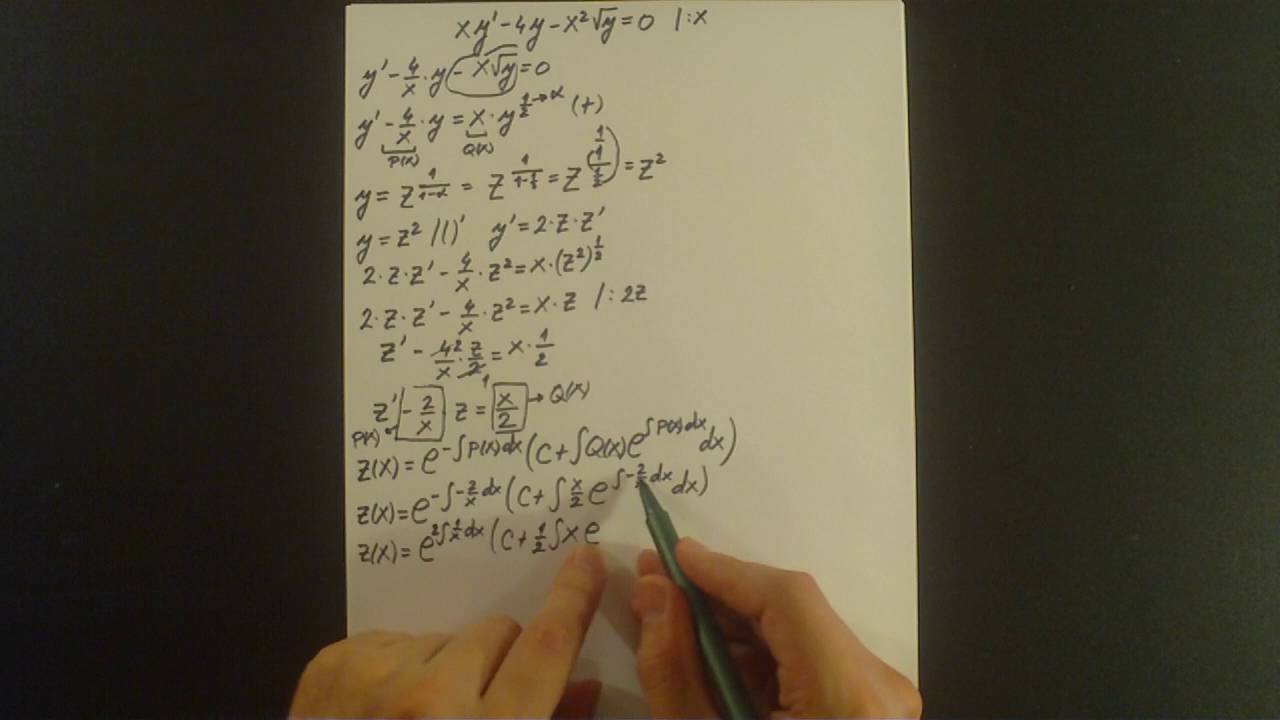 xy' - 4y - x²√y = 0 /:x
y' - 4/x · y - x√y = 0
y' - 4/x · y = x · y^(1/2) → α (+)
P(x) Q(x)
y = z^(1/(1-α)) = z^(1/(1-1/2)) = z^(1/(1/2)) = z²
y = z² /()' y' = 2·z·z'
2·z·z' - 4/x · z² = x·(z²)^(1/2)
2·z·z' - 4/x · z² = x·z /:2z
z' - 4²/x · z/2 = x · 1/2
1
z' - 2/x z = x/2 → Q(x)
P(x) ←
z(x) = e^(-∫P(x)dx) (C + ∫Q(x)e^(∫P(x)dx) dx)
z(x) = e^(-∫-2/x dx) (C + ∫x/2 e^(∫-2/x dx) dx)
z(x) = e^(2∫1/x dx) (C + 1/2 ∫x e